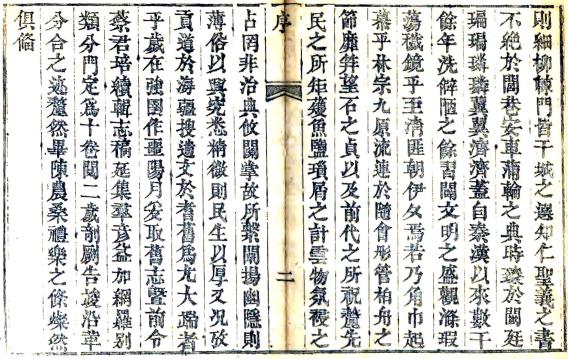 則細柳棘門皆干城之選知仁聖義之書
不絕於閭巷安車蒲輪之典時臻於闕廷
璘璘翼翼濟濟蓋自秦漢以來數千
餘年洗僻陋之餘習闡文明之盛觀滌瑕
蕩穢鏡乎至清匪朝伊夕焉若乃角巾起
慕乎林宗九原流連於隨會彤管柏舟之
節靡笄望石之貞以及前代之所祝釐先
民之所矩矱魚鹽瑣屑之計雲物氛祲之
序
二
占罔非治典攸關掌故所繫闡揚幽隱則
薄俗以興悉精微則民生以厚又況攷
貢道於海疆搜遺文於耆舊爲尤大端者
乎歲在強圉作噩陽月爰取舊志暨前令
蔡君培續輯志稿延集羣彥益加網羅別
類分門定爲十卷閱二歲剞劂告竣沿革
分合之迹釐然畢陳農桑禮樂之條燦然
俱備